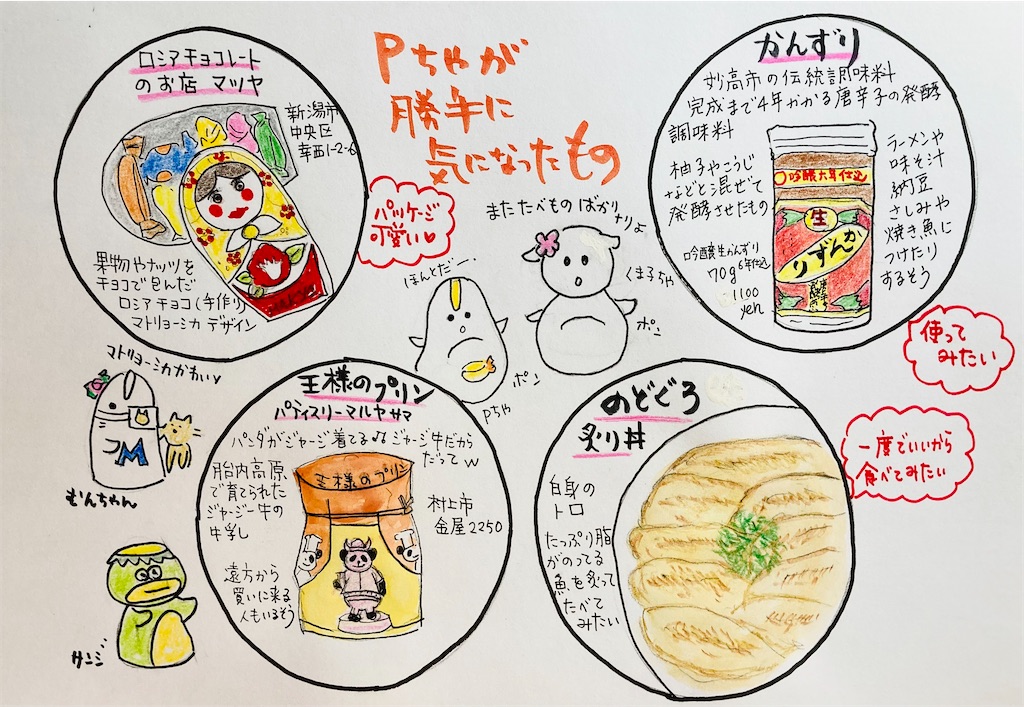 Pちゃが
勝手に
気になったもの
ロシアチョコレート
のお店 マツヤ
新潟市
中央区
幸西1-2-6
果物やナッツを
チョコで包んだ
ロシアチョコ(手作り)
マトリョーシカ デザイン
パッケージ
可愛い♡
かんずり
妙高市の伝統調味料
完成まで4年かかる唐辛子の発酵
調味料
柚子やこうじ
などと混ぜて
発酵させたもの
吟醸生かんずり
6年仕込
70g
1100
yen
吟醸六年仕込
生
かんずり
ラーメンや
味そ汁
納豆
さしみや
焼き魚に
つけたり
するそう
使って
みたい
またたべものばかり
ナリよ
くま子ちゃ
ポン
ほんとだー、
ポン
Pちゃ
マトリョーシカかわいv
JM
むんちゃん
サンジ
王様のプリン
パティスリーマルヤサマ
パンダがジャージ着てる♫ジャージ牛だから
だってw
胎内高原
で育てられた
ジャージー牛の
牛乳
遠方から
買いに来る
人もいるそう
王様のプリン
村上市
金屋2250
のどぐろ
炙り丼
白身の
トロ
たっぷり脂
がのってる
魚を炙って
たべて
みたい
一度でいいから
食べてみたい